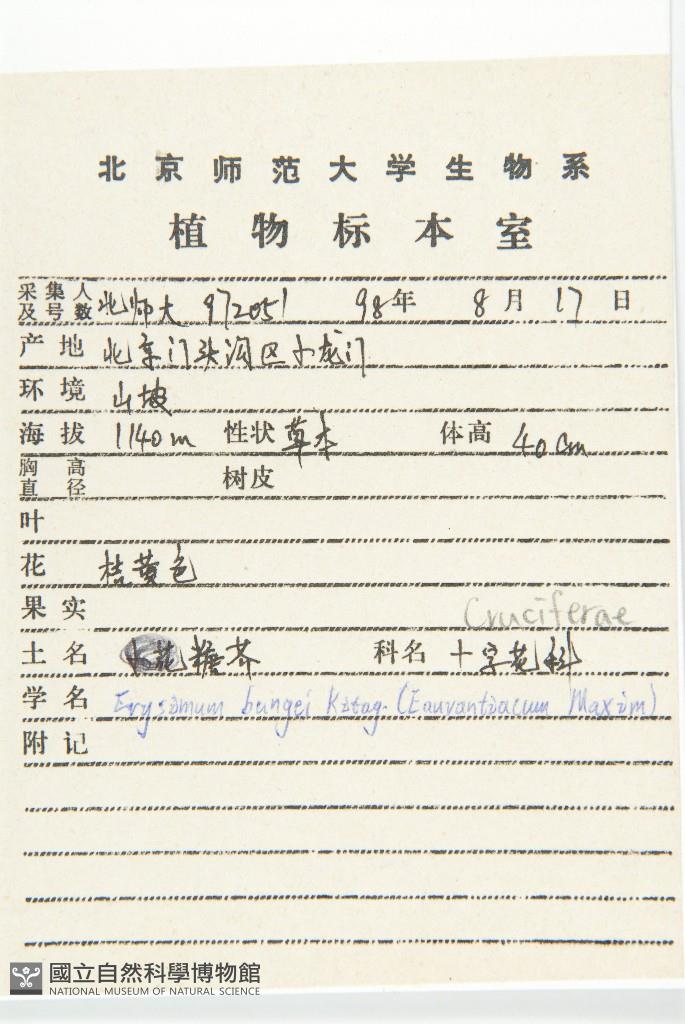 北京师范大学生物系
植物标本室
采集人及号数 北师大 972051 98年 8月17日
产地 北京门头沟区小龙门
环境 山坡
海拔 1140m 性状 草本 体高 40cm
胸高直径 树皮
叶
花 桔黄色
果实 Cruciferae
土名 花糖芥 科名 十字花科
学名 Erysimum bungei Kitag. (E aurantiacum Maxim)
附记
國立自然科學博物館
NATIONAL MUSEUM OF NATURAL SCIENCE